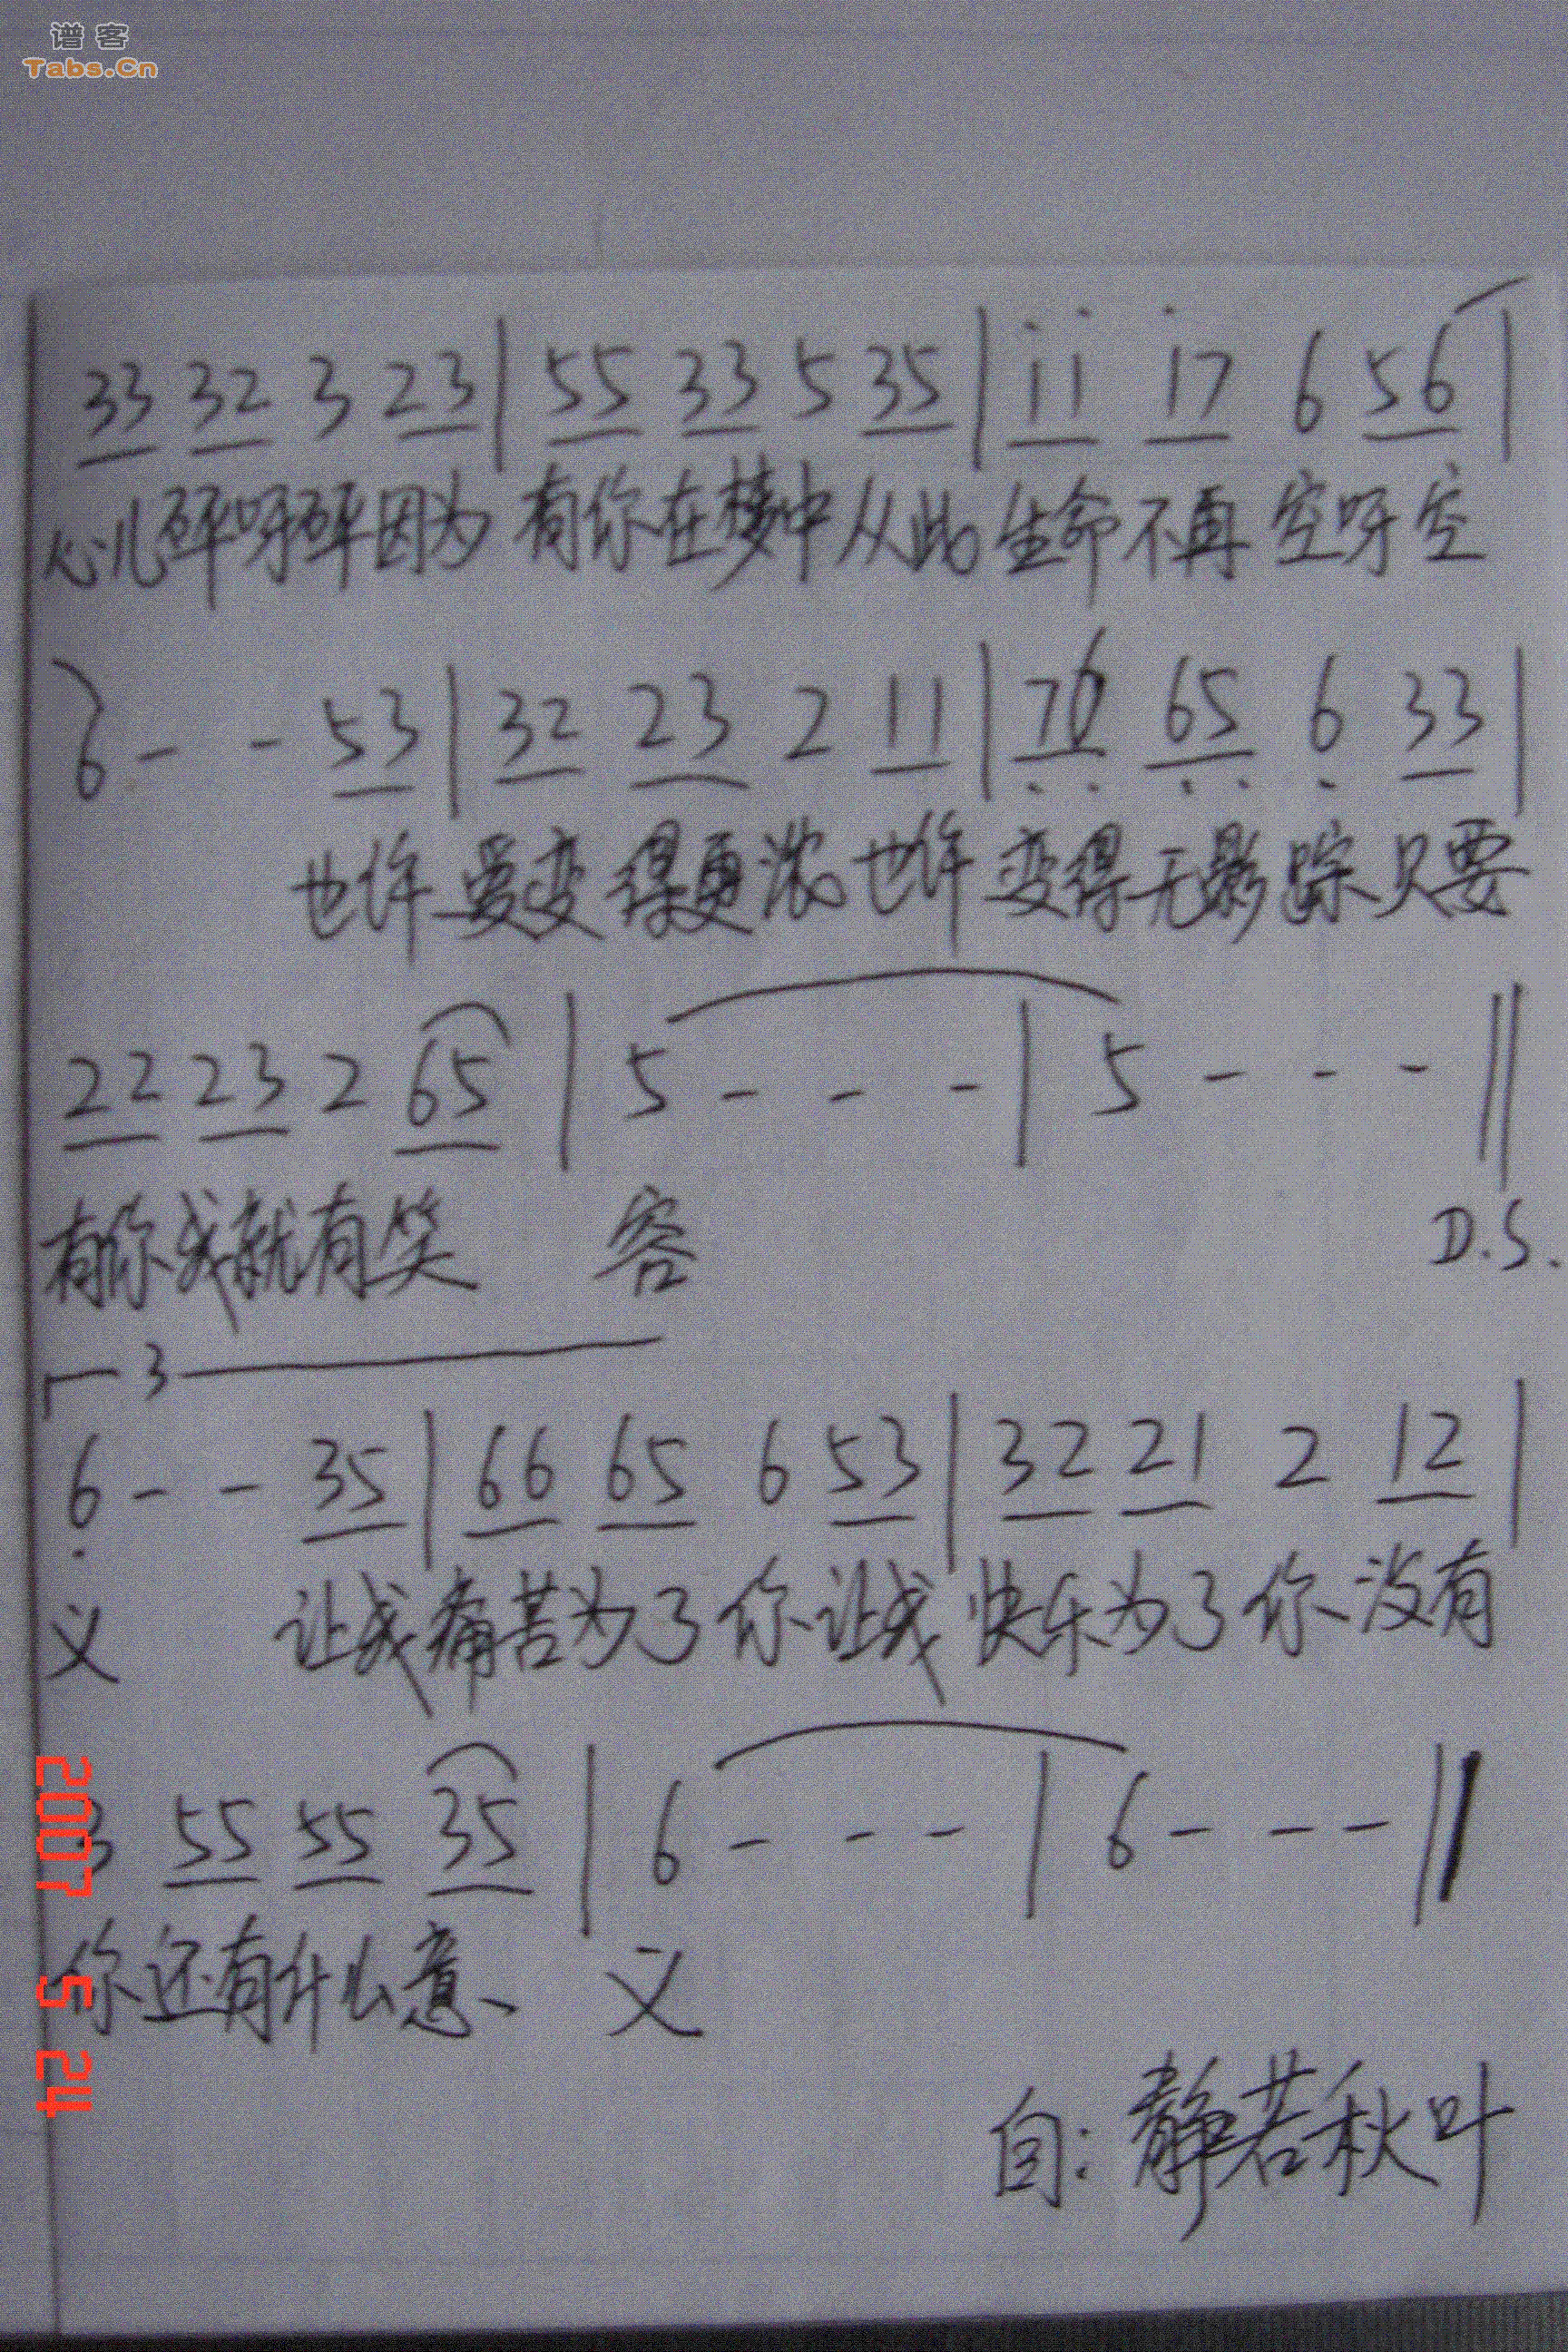 谱客
Tabs.Cn
33 32 3 23 | 55 33 5 35 | 11 17 6 56 |
心儿砰呀砰因为 有你在梦中从此 生命不再空呀空
6 - - 53 | 32 23 2 11 | 76 65 6 33 |
也许 要变得更浓也许 变得无影踪只要
22 23 2 65 | 5 - - - | 5 - - - ||
有你我就有笑 容 D.S.
3
6 - - 35 | 66 65 6 53 | 32 21 2 12 |
义 让我痛苦为了你让我 快乐为了你没有
3 55 55 35 | 6 - - - | 6 - - - ||
你还有什么意 义
自:静若秋叶
2007 5 24